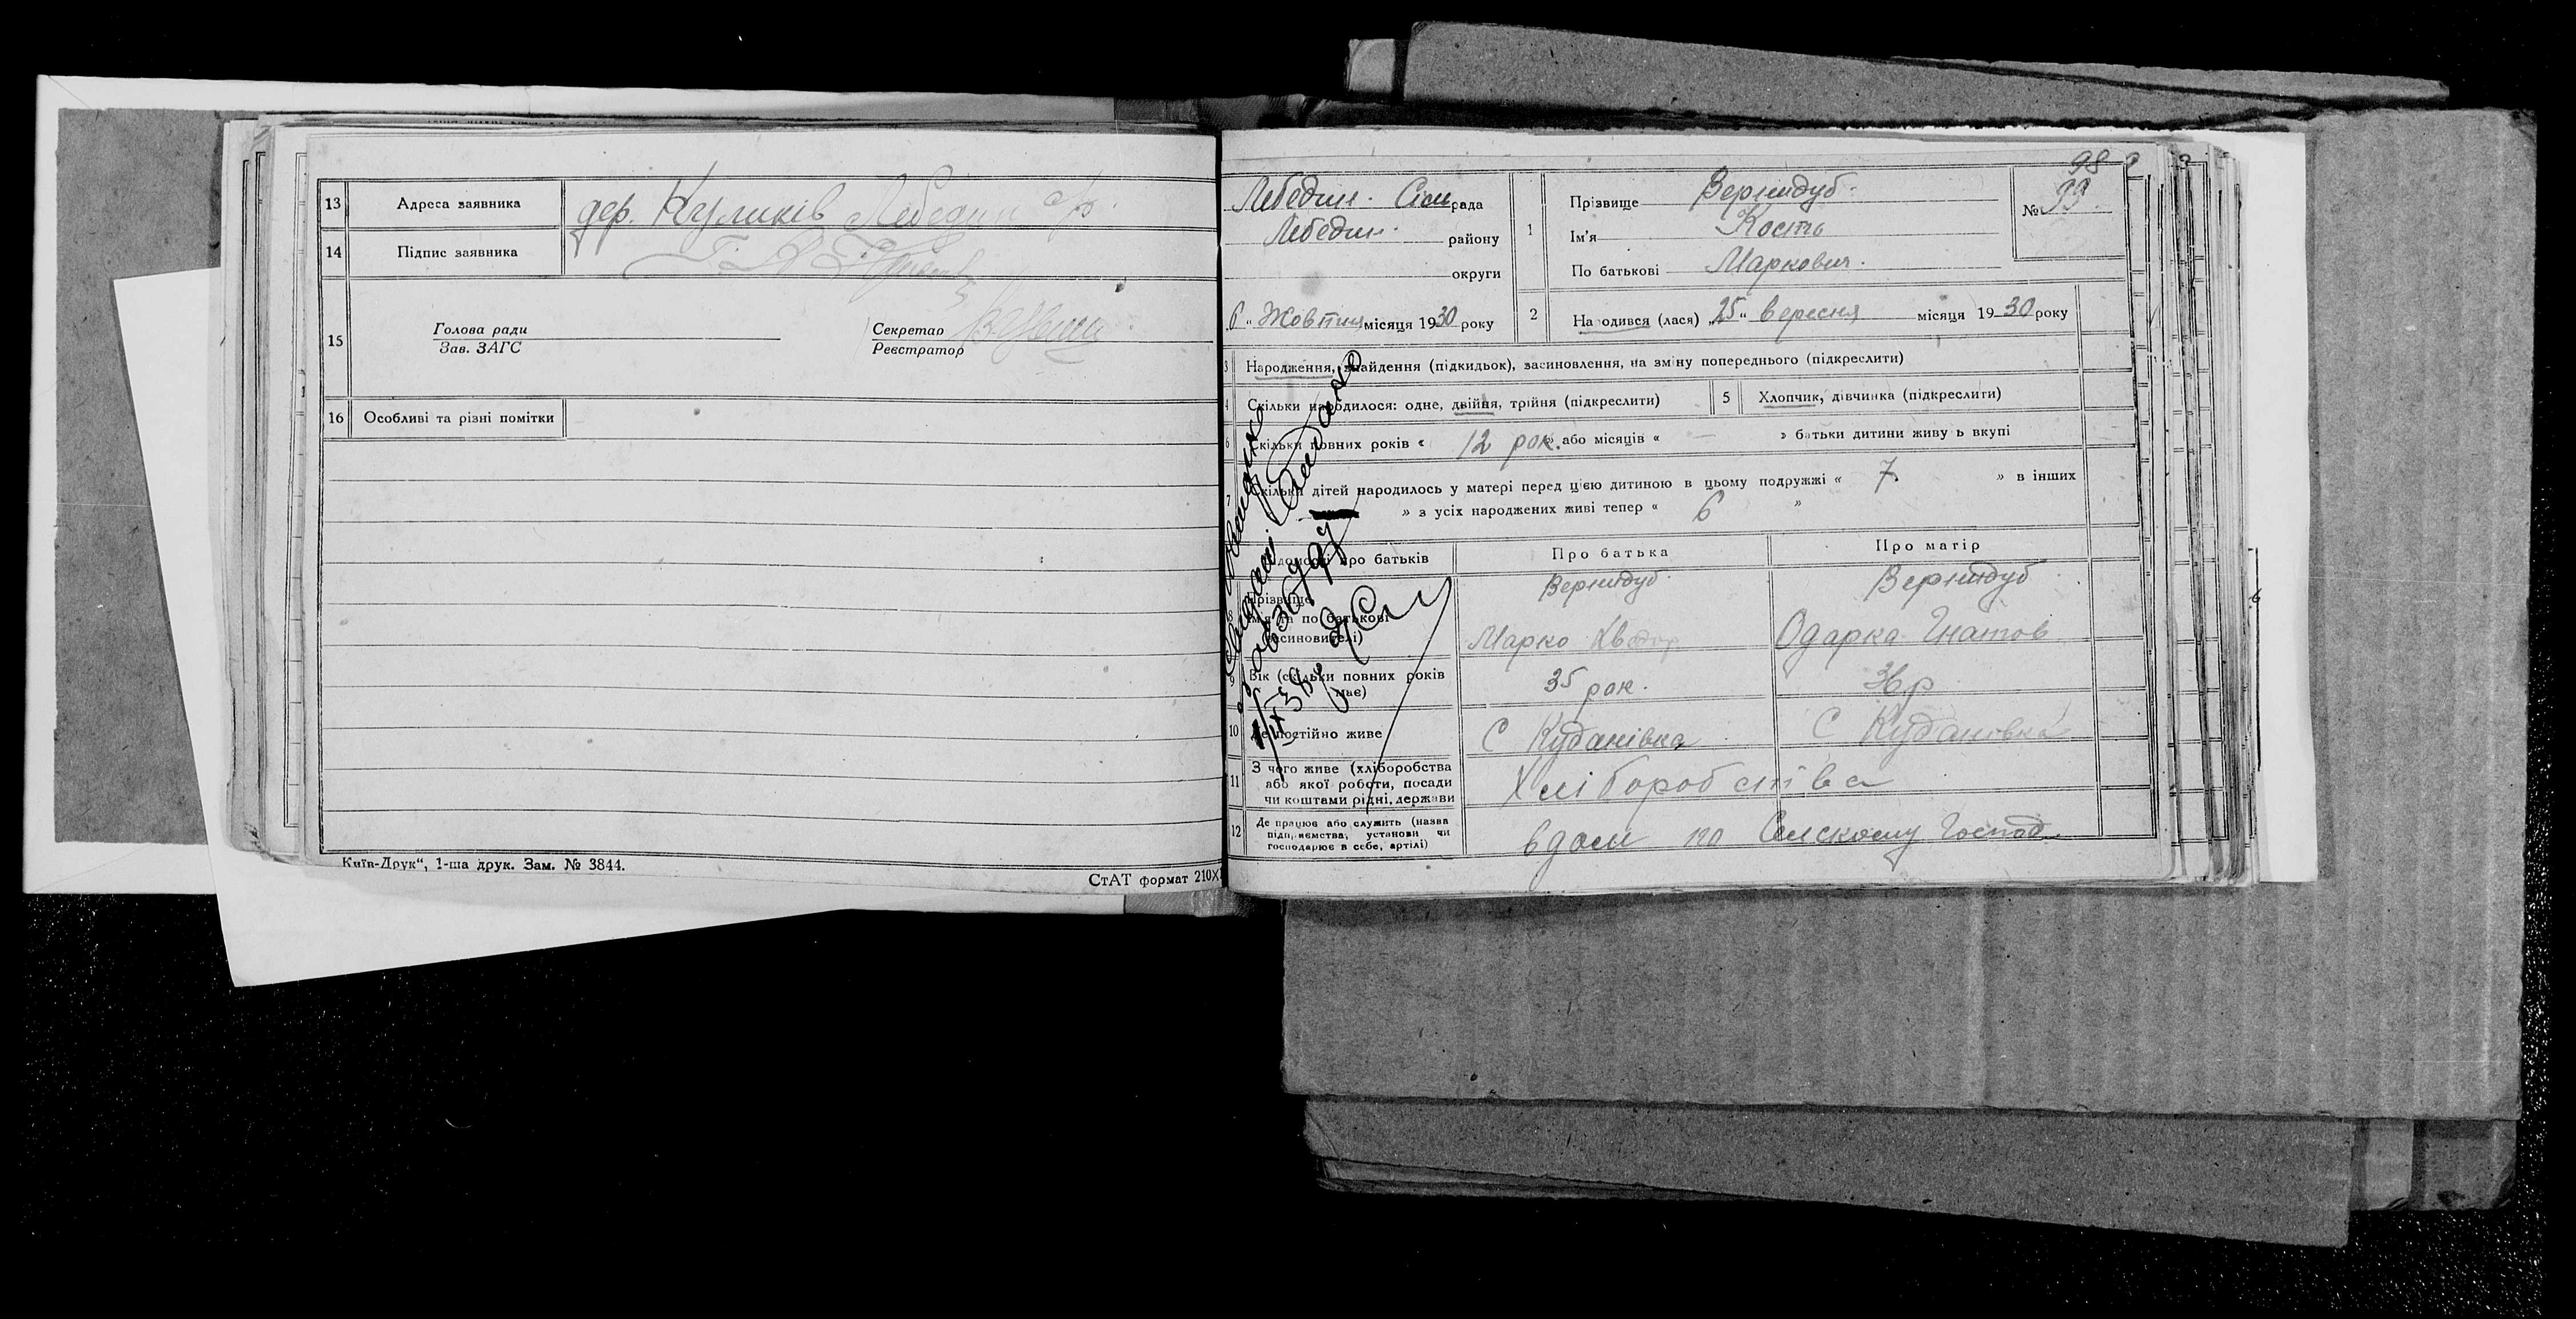 13 Адреса заявника дер. Куликів Лебедин с/р.
14 Підпис заявника
15 Голова ради
Зав. ЗАГС
Секретар
Реєстратор
16 Особливі та різні помітки
Київ-Друк“, 1-ша друк. Зам. № 3844.
СтАТ формат 210Х
98
Лебедин. Сільрада
Лебедин. району
округи
6 „ Жовтня місяця 1930 року
1 Прізвище Вернидуб.
Ім'я Кость
По батькові Маркович.
№ 99.
2 Народився (лася) „25“ вересня місяця 1930 року
3 Народження, знайдення (підкидьок), засиновлення, на зміну попереднього (підкреслити)
4 Скільки народилося: одне, двійня, трійня (підкреслити)
5 Хлопчик, дівчинка (підкреслити)
6 Скільки повних років « 12 рок. » або місяців « — » батьки дитини живуть вкупі
7 Скільки дітей народилось у матері перед цією дитиною в цьому подружжі « 7 » в інших
» з усіх народжених живі тепер « 6 »
Відомості про батьків
Про батька
Про матір
8 Прізвище
Ім'я та по батькові
(засиновителі)
Вернидуб.
Марко
Вернидуб
Одарка Гнатов
9 Вік (скільки повних років має) 35 рок. 36 р
10 Де постійно живе С Куданівка С Куданівка
11 З чого живе (хліборобства
або якої роботи, посади
чи коштами рідні, держави
Хліборобства
12 Де працює або служить (назва
підприємства, установи чи
господарює в себе, артілі)
вдом по Сельскому Господ.